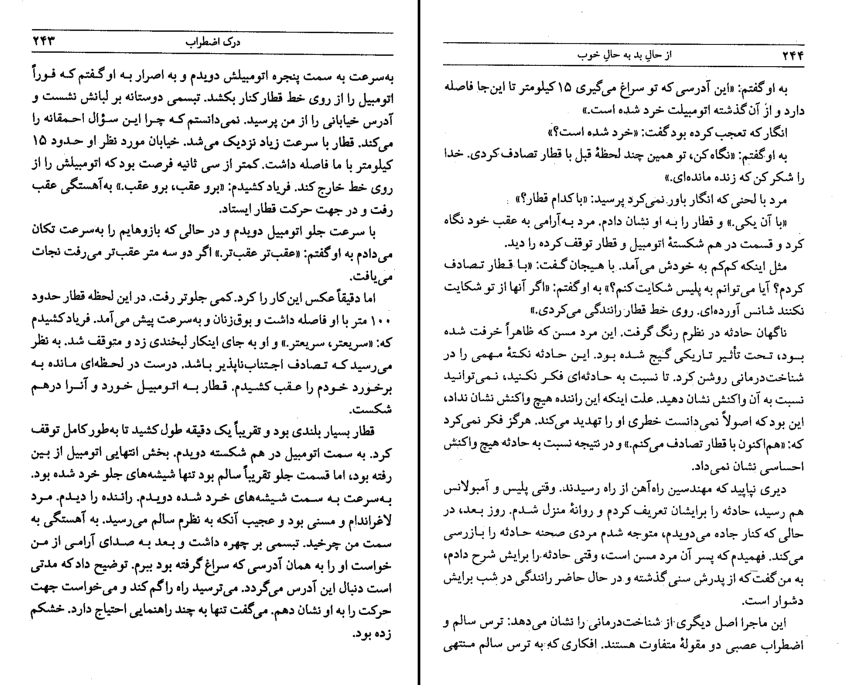 درک اضطراب ۲۴۳
به‌سرعت به سمت پنجره اتومبیلش دویدم و به اصرار به او گفتم که فوراً
اتومبیل را از روی خط قطار کنار بکشد. تبسمی دوستانه بر لبانش نشست و
آدرس خیابانی را از من پرسید. نمی‌دانستم که چرا این سؤال احمقانه را
می‌کند. قطار با سرعت زیاد نزدیک می‌شد. خیابان مورد نظر او حدود ۱۵
کیلومتر با ما فاصله داشت. کمتر از سی ثانیه فرصت بود که اتومبیلش را از
روی خط خارج کند. فریاد کشیدم: «برو عقب، برو عقب.» به‌آهستگی عقب
رفت و در جهت حرکت قطار ایستاد.
با سرعت جلو اتومبیل دویدم و در حالی که بازوهایم را به‌سرعت تکان
می‌دادم به او گفتم: «عقب‌تر عقب‌تر.» اگر دو سه متر عقب‌تر می‌رفت نجات
می‌یافت.
اما دقیقاً عکس این کار را کرد. کمی جلوتر رفت. در این لحظه قطار حدود
۱۰۰ متر با او فاصله داشت و بوق‌زنان و به‌سرعت پیش می‌آمد. فریاد کشیدم
که: «سریعتر، سریعتر.» و او به جای اینکار لبخندی زد و متوقف شد. به نظر
می‌رسید که تصادف اجتناب‌ناپذیر باشد. درست در لحظه‌ای مانده به
برخورد خودم را عقب کشیدم. قطار به اتومبیل خورد و آنرا درهم
شکست.
قطار بسیار بلندی بود و تقریباً یک دقیقه طول کشید تا به‌طور کامل توقف
کرد. به سمت اتومبیل در هم شکسته دویدم. بخش انتهایی اتومبیل از بین
رفته بود، اما قسمت جلو تقریباً سالم بود تنها شیشه‌های جلو خرد شده بود.
به‌سرعت به سمت شیشه‌های خرد شده دویدم. راننده را دیدم. مرد
لاغراندام و مسنی بود و عجیب آنکه به نظرم سالم می‌رسید. به آهستگی به
سمت من چرخید. تبسمی بر چهره داشت و بعد به صدای آرامی از من
خواست او را به همان آدرسی که سراغ گرفته بود ببرم. توضیح داد که مدتی
است دنبال این آدرس می‌گردد. می‌ترسید راه را گم کند و می‌خواست جهت
حرکت را به او نشان دهم. می‌گفت تنها به چند راهنمایی احتیاج دارد. خشکم
زده بود.
۲۴۴ از حالِ بد به حالِ خوب
به او گفتم: «این آدرسی که تو سراغ می‌گیری ۱۵ کیلومتر تا این‌جا فاصله
دارد و از آن گذشته اتومبیلت خرد شده است.»
انگار که تعجب کرده بود گفت: «خرد شده است؟»
به او گفتم: «نگاه کن، تو همین چند لحظهٔ قبل با قطار تصادف کردی. خدا
را شکر کن که زنده مانده‌ای.»
مرد با لحنی که انگار باور نمی‌کرد پرسید: «با کدام قطار؟»
«با آن یکی.» و قطار را به او نشان دادم. مرد به‌آرامی به عقب خود نگاه
کرد و قسمت در هم شکستهٔ اتومبیل و قطار توقف کرده را دید.
مثل اینکه کم‌کم به خودش می‌آمد. با هیجان گفت: «با قطار تصادف
کردم؟ آیا می‌توانم به پلیس شکایت کنم؟» به او گفتم: «اگر آنها از تو شکایت
نکنند شانس آورده‌ای. روی خط قطار رانندگی می‌کردی.»
ناگهان حادثه در نظرم رنگ گرفت. این مرد مسن که ظاهراً خرفت شده
بود، تحت تأثیر تاریکی گیج شده بود. این حادثه نکتهٔ مهمی را در
شناخت‌درمانی روشن کرد. تا نسبت به حادثه‌ای فکر نکنید، نمی‌توانید
نسبت به آن واکنش نشان دهید. علت اینکه این راننده هیچ واکنش نشان نداد،
این بود که اصولاً نمی‌دانست خطری او را تهدید می‌کند. هرگز فکر نمی‌کرد
که: «هم‌اکنون با قطار تصادف می‌کنم.» و در نتیجه نسبت به حادثه هیچ واکنش
احساسی نشان نمی‌داد.
دیری نپایید که مهندسین راه‌آهن از راه رسیدند. وقتی پلیس و آمبولانس
هم رسید، حادثه را برایشان تعریف کردم و روانهٔ منزل شدم. روز بعد، در
حالی که کنار جاده می‌دویدم، متوجه شدم مردی صحنه حادثه را بازرسی
می‌کند. فهمیدم که پسر آن مرد مسن است، وقتی حادثه را برایش شرح دادم،
به من گفت که از پدرش سنی گذشته و در حال حاضر رانندگی در شب برایش
دشوار است.
این ماجرا اصل دیگری از شناخت‌درمانی را نشان می‌دهد: ترس سالم و
اضطراب عصبی دو مقولهٔ متفاوت هستند. افکاری که به ترس سالم منتهی